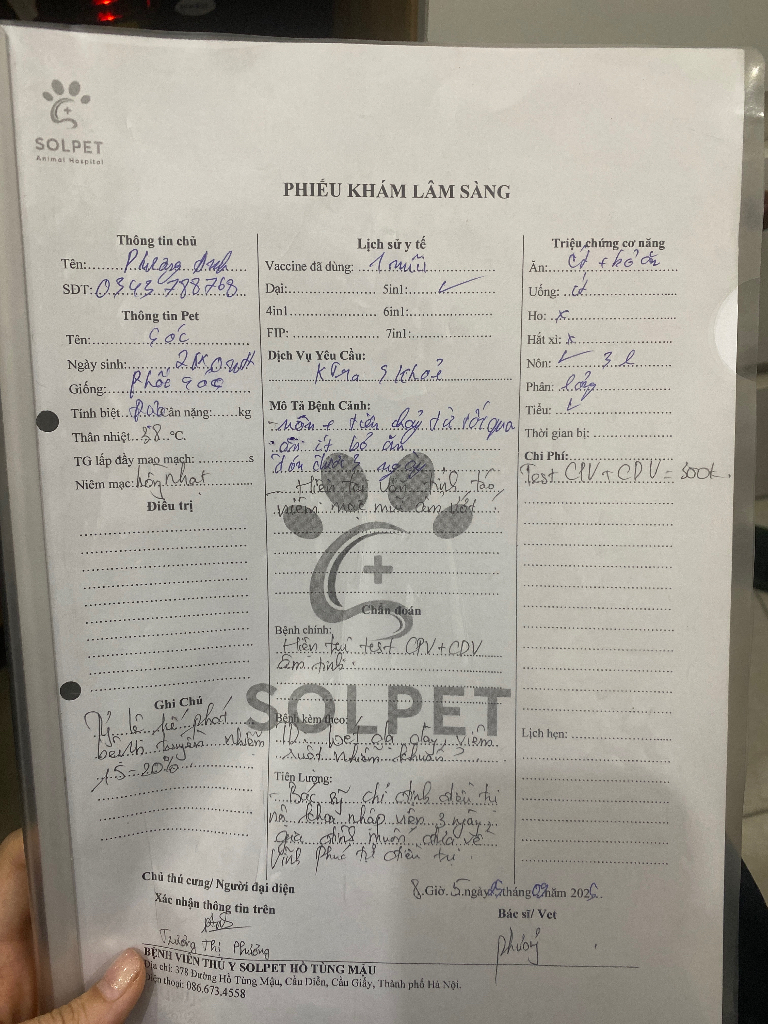 SOLPET
Animal Hospital
PHIẾU KHÁM LÂM SÀNG
Thông tin chủ
Tên: Phương Anh
SĐT: 0343 788768
Thông tin Pet
Tên: Gốc
Ngày sinh: 2
Giống: Phốc
Tính biệt Cân nặng:......kg
Thân nhiệt 38 °C.
TG lấp đầy mao mạch: s
Niêm mạc: hồng nhạt
Điều trị
Ghi Chú
Tỷ lệ kế phát
bệnh truyền nhiễm
15 - 20%
Lịch sử y tế
Vaccine đã dùng: 1 mũi
Dại: 5in1: ✓
4in1 6in1:
FIP: 7in1:
Dịch Vụ Yêu Cầu:
Ktra s khoẻ
Mô Tả Bệnh Cảnh:
- nôn + tiêu chảy từ tối qua
- ăn ít bỏ ăn
đón được 3 ngày
- Hiện tại vẫn tỉnh táo,
niêm mạc mũi ẩm ướt.
Chẩn đoán
Bệnh chính:
Hiện tại test CPV + CDV
âm tính.
SOLPET
Bệnh kèm theo:
dạ dày, viêm
ruột nhiễm khuẩn
Tiên Lượng:
- Bác sỹ chỉ định điều trị
nhập viện 3 ngày,
gia đình muốn đưa về
Vĩnh Phúc để điều trị.
Triệu chứng cơ năng
Ăn: ít + bỏ ăn
Uống: ít
Ho: x
Hắt xì: x
Nôn: ✓ 3 l
Phân: lỏng
Tiểu: ✓
Thời gian bị:
Chi Phí:
Test CPV + CDV = 300k
Lịch hẹn:
Chủ thú cưng/ Người đại diện
Xác nhận thông tin trên
Trương Thị Phương
8 Giờ. 5 ngày 05 tháng 02 năm 202
Bác sĩ/ Vet
BỆNH VIỆN THÚ Y SOLPET HỒ TÙNG MẬU
Địa chỉ: 378 Đường Hồ Tùng Mậu, Cầu Diễn, Cầu Giấy, Thành phố Hà Nội.
Điện thoại: 086.673.4558